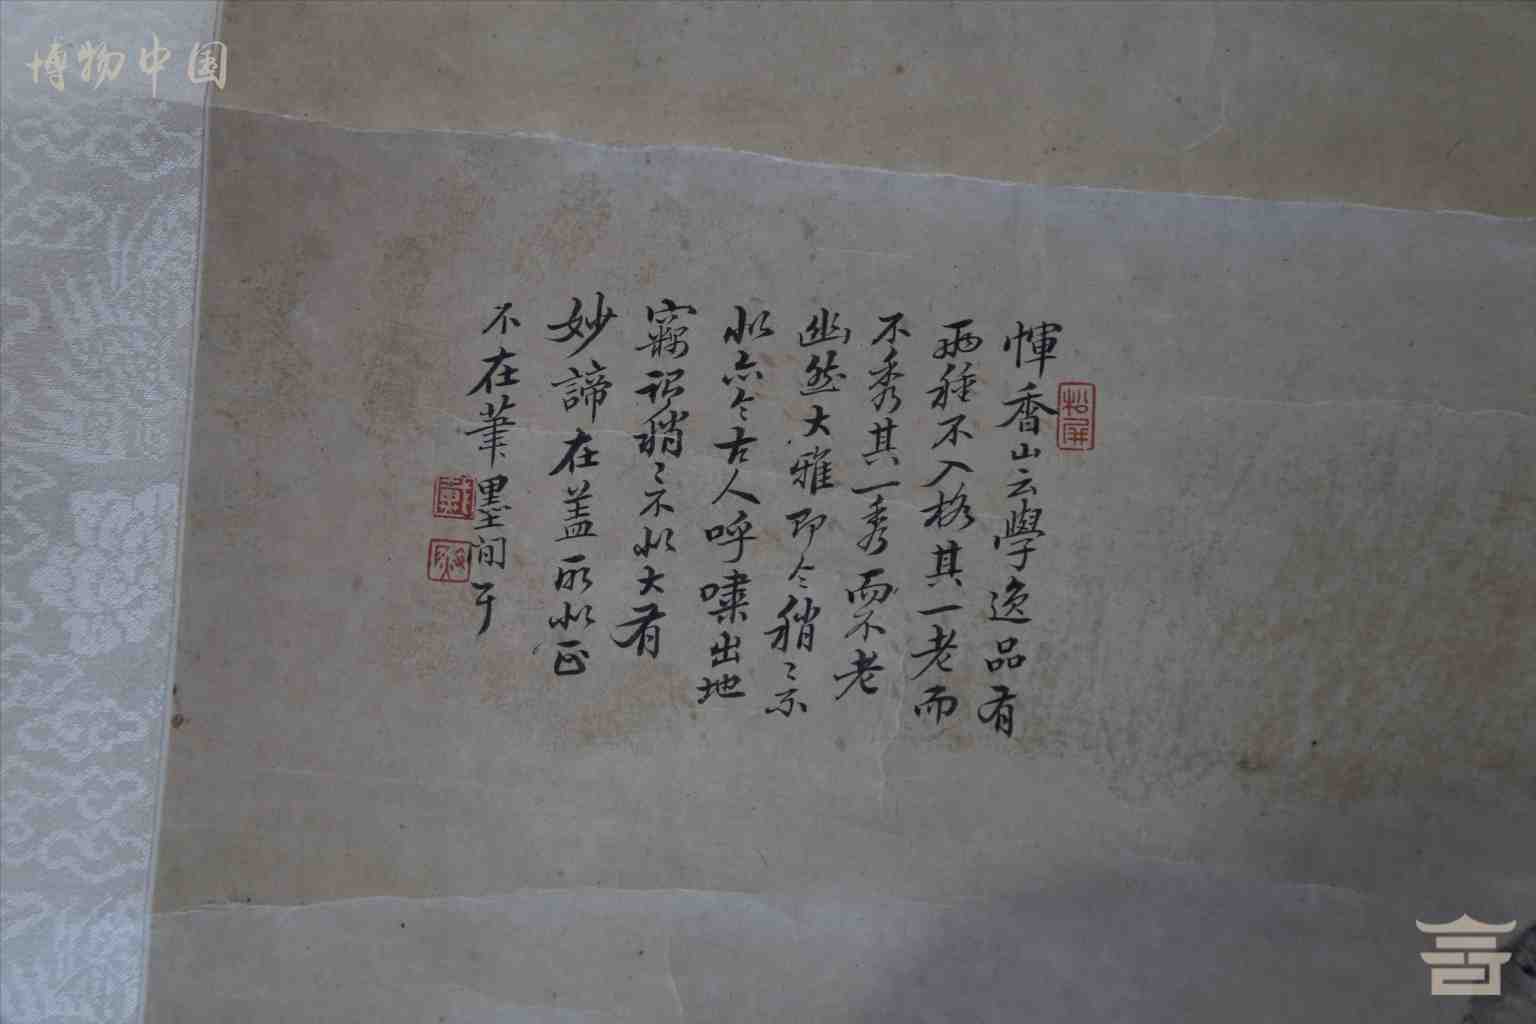 博物中国
松屏
惲香山云學逸品有
兩種不入格其一老而
不秀其一秀而不老
幽然大雅即令稍〻示
似亦令古人呼嘯出地
竊謂稍〻不似大有
妙諦在蓋所似正
不在筆墨間耳
戴